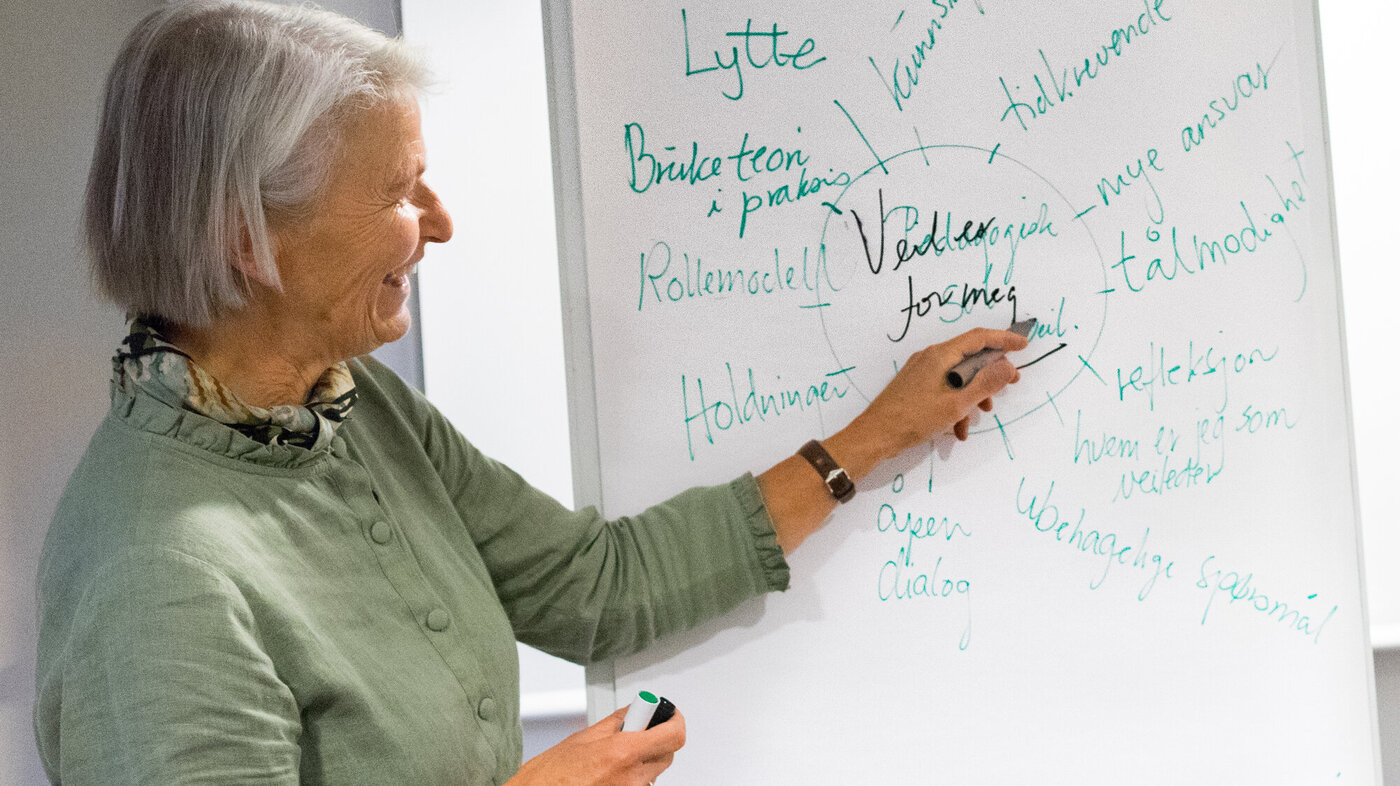 Lytte
tidkrevende
Bruke teori
i praksis
mye ansvar
Rollemodell
tålmodighet
Pedagogisk
for meg
Holdninger
refleksjon
hvem er jeg som
veileder
åpen
dialog
Ubehagelige spørsmål